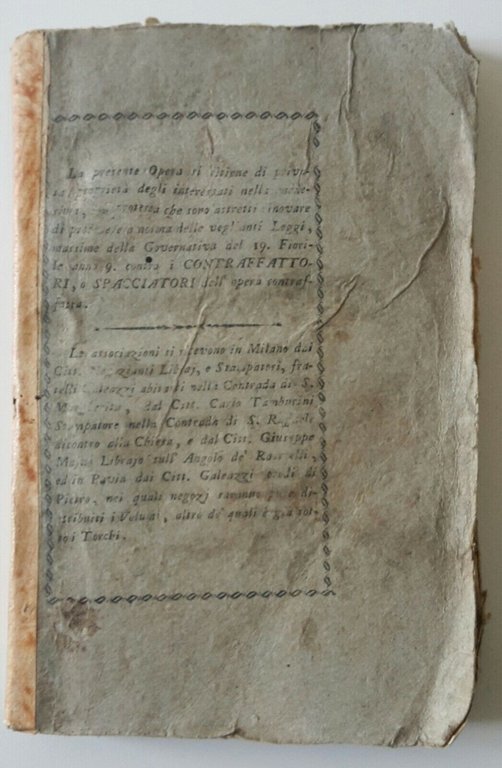 La presente Opera si ritiene di priva-
ta proprietà degli interessati nella mede-
sima, protesta che sono astretti rinovare
di procedere a norma delle veglianti Leggi,
massime della Governativa del 19. Fiori-
le anno 9. contro i CONTRAFFATTO-
RI, o SPACCIATORI dell' opera contraf-
fatta.
Le associazioni si ricevono in Milano dai
Citt. Negozianti Libraj, e Stampatori, fra-
telli Galeazzi abitanti nella Contrada di S.
Margherita, dal Citt. Carlo Tamburini
Stampatore nella Contrada di S. Raffaele
dicontro alla Chiesa, e dal Citt. Giuseppe
Librajo sull' Angolo de'
ed in Pavia dai Citt. Galeazzi eredi di
Pietro, nei quali negozj saranno pure di-
stribuiti i Volumi, oltre de' quali è già sot-
to i Torchi.